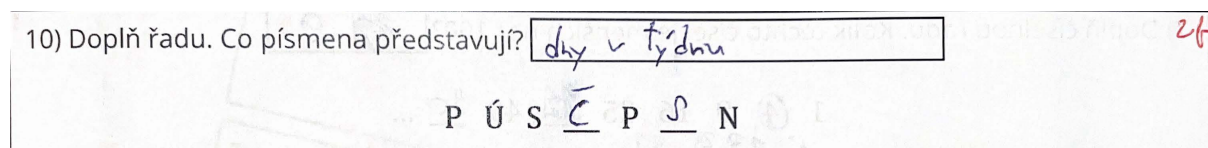 10) Doplň řadu. Co písmena představují? dny v týdnu 2b
P Ú S Č P S N